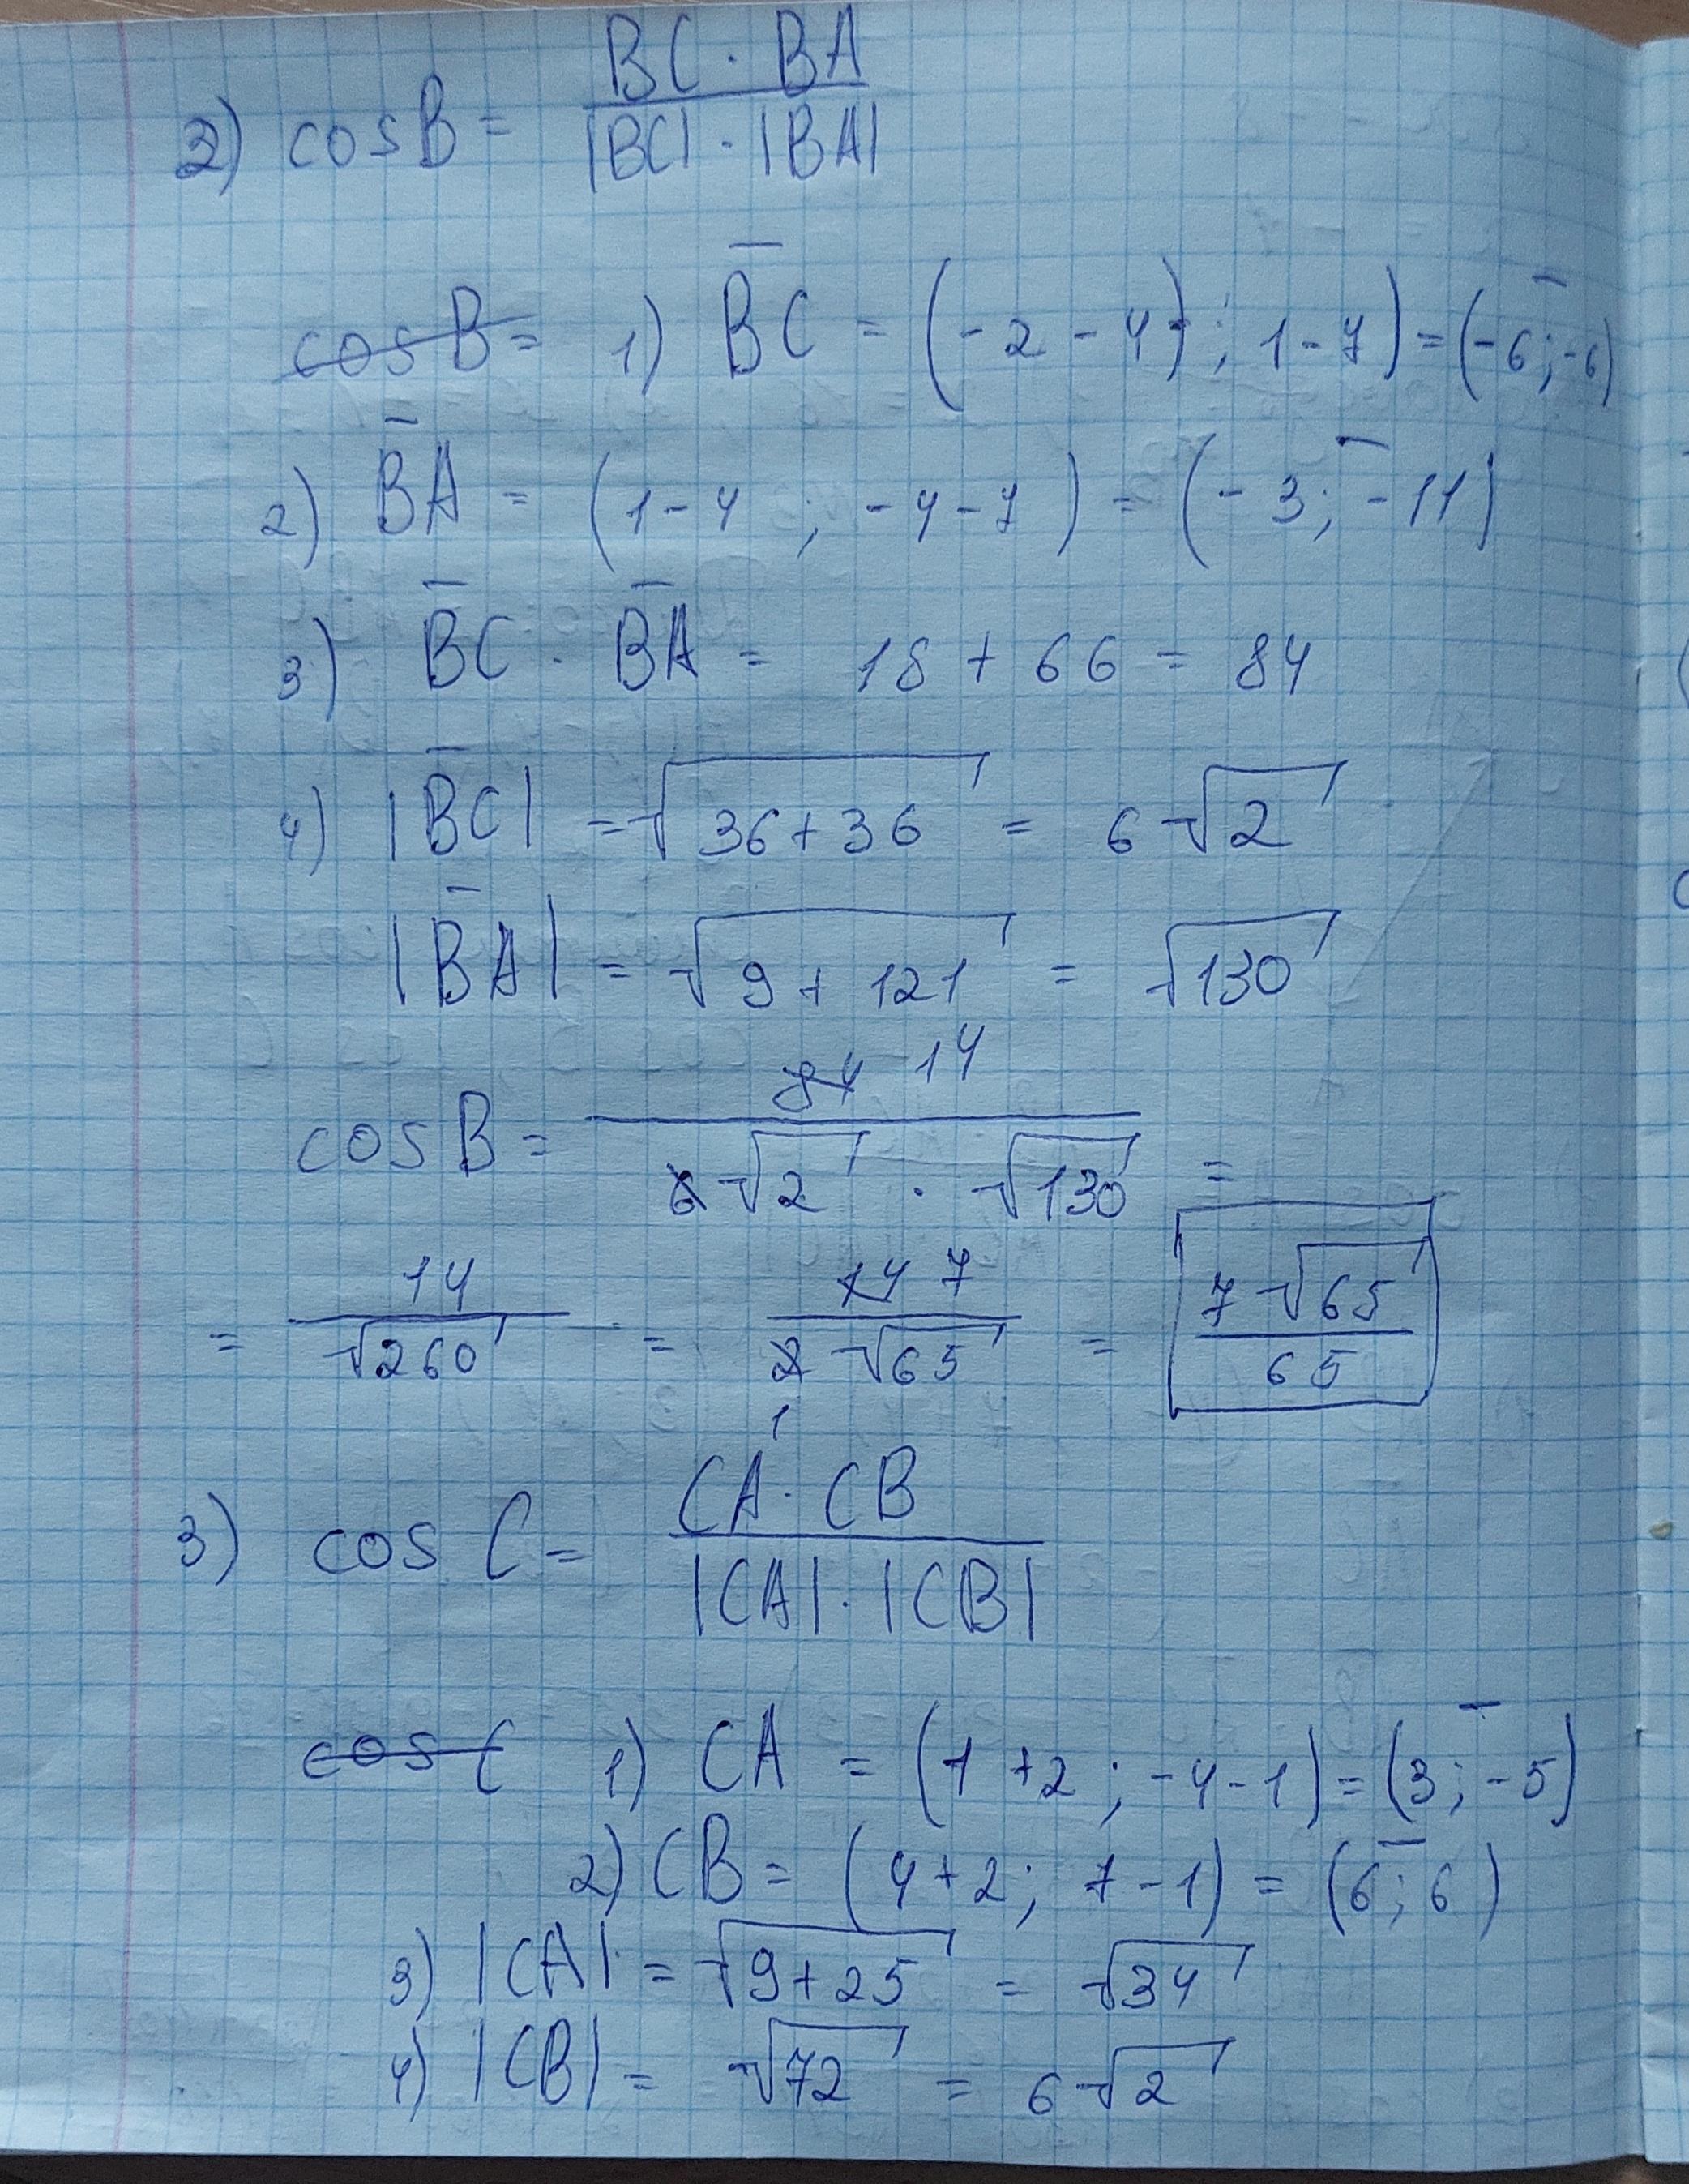 2) cos B = BC · BA / |BC| · |BA|
cos B = 1) BC = (-2 - 4) ; 1 - 7) = (-6; -6)
2) BA = (1 - 4 ; -4 - 7) = (-3; -11)
3) BC · BA = 18 + 66 = 84
4) |BC| = √36+36 = 6√2
|BA| = √9 + 121 = √130
cos B = 84 14 / 6√2 · √130 =
= 14 / √260 = 14 7 / 2√65 1 = 7√65 / 65
3) cos C = CA · CB / |CA| · |CB|
cos C 1) CA = (1 + 2 ; -4 - 1) = (3; -5)
2) CB = (4 + 2; 7 - 1) = (6; 6)
3) |CA| = √9+25 = √34
4) |CB| = √72 = 6√2